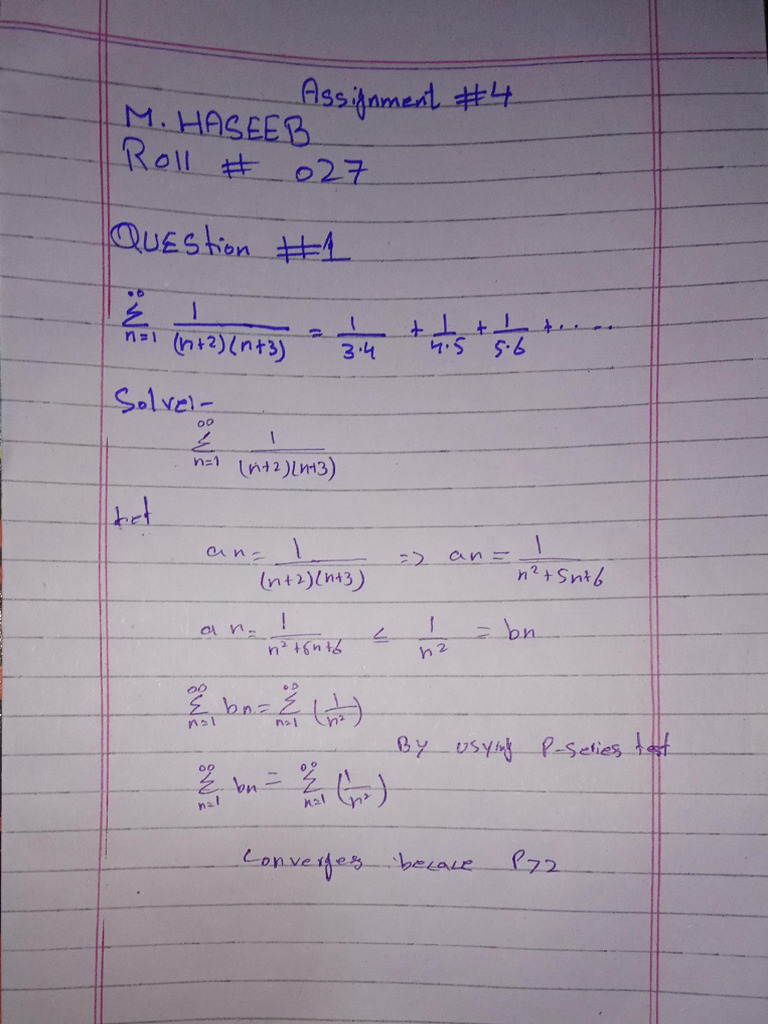 Assignment #4
M. HASEEB
Roll # 027
QUEStion #1
∞ Σ n=1 1/(n+2)(n+3) = 1/3·4 + 1/4·5 + 1/5·6 + .....
Solve:-
∞ Σ n=1 1/(n+2)(n+3)
Let
an = 1/(n+2)(n+3) => an = 1/n²+5n+6
an = 1/n²+5n+6 ≤ 1/n² = bn
∞ Σ n=1 bn = ∞ Σ n=1 (1/n²)
By usying P-series test
∞ Σ n=1 bn = ∞ Σ n=1 (1/n²)
Converges becase P>2